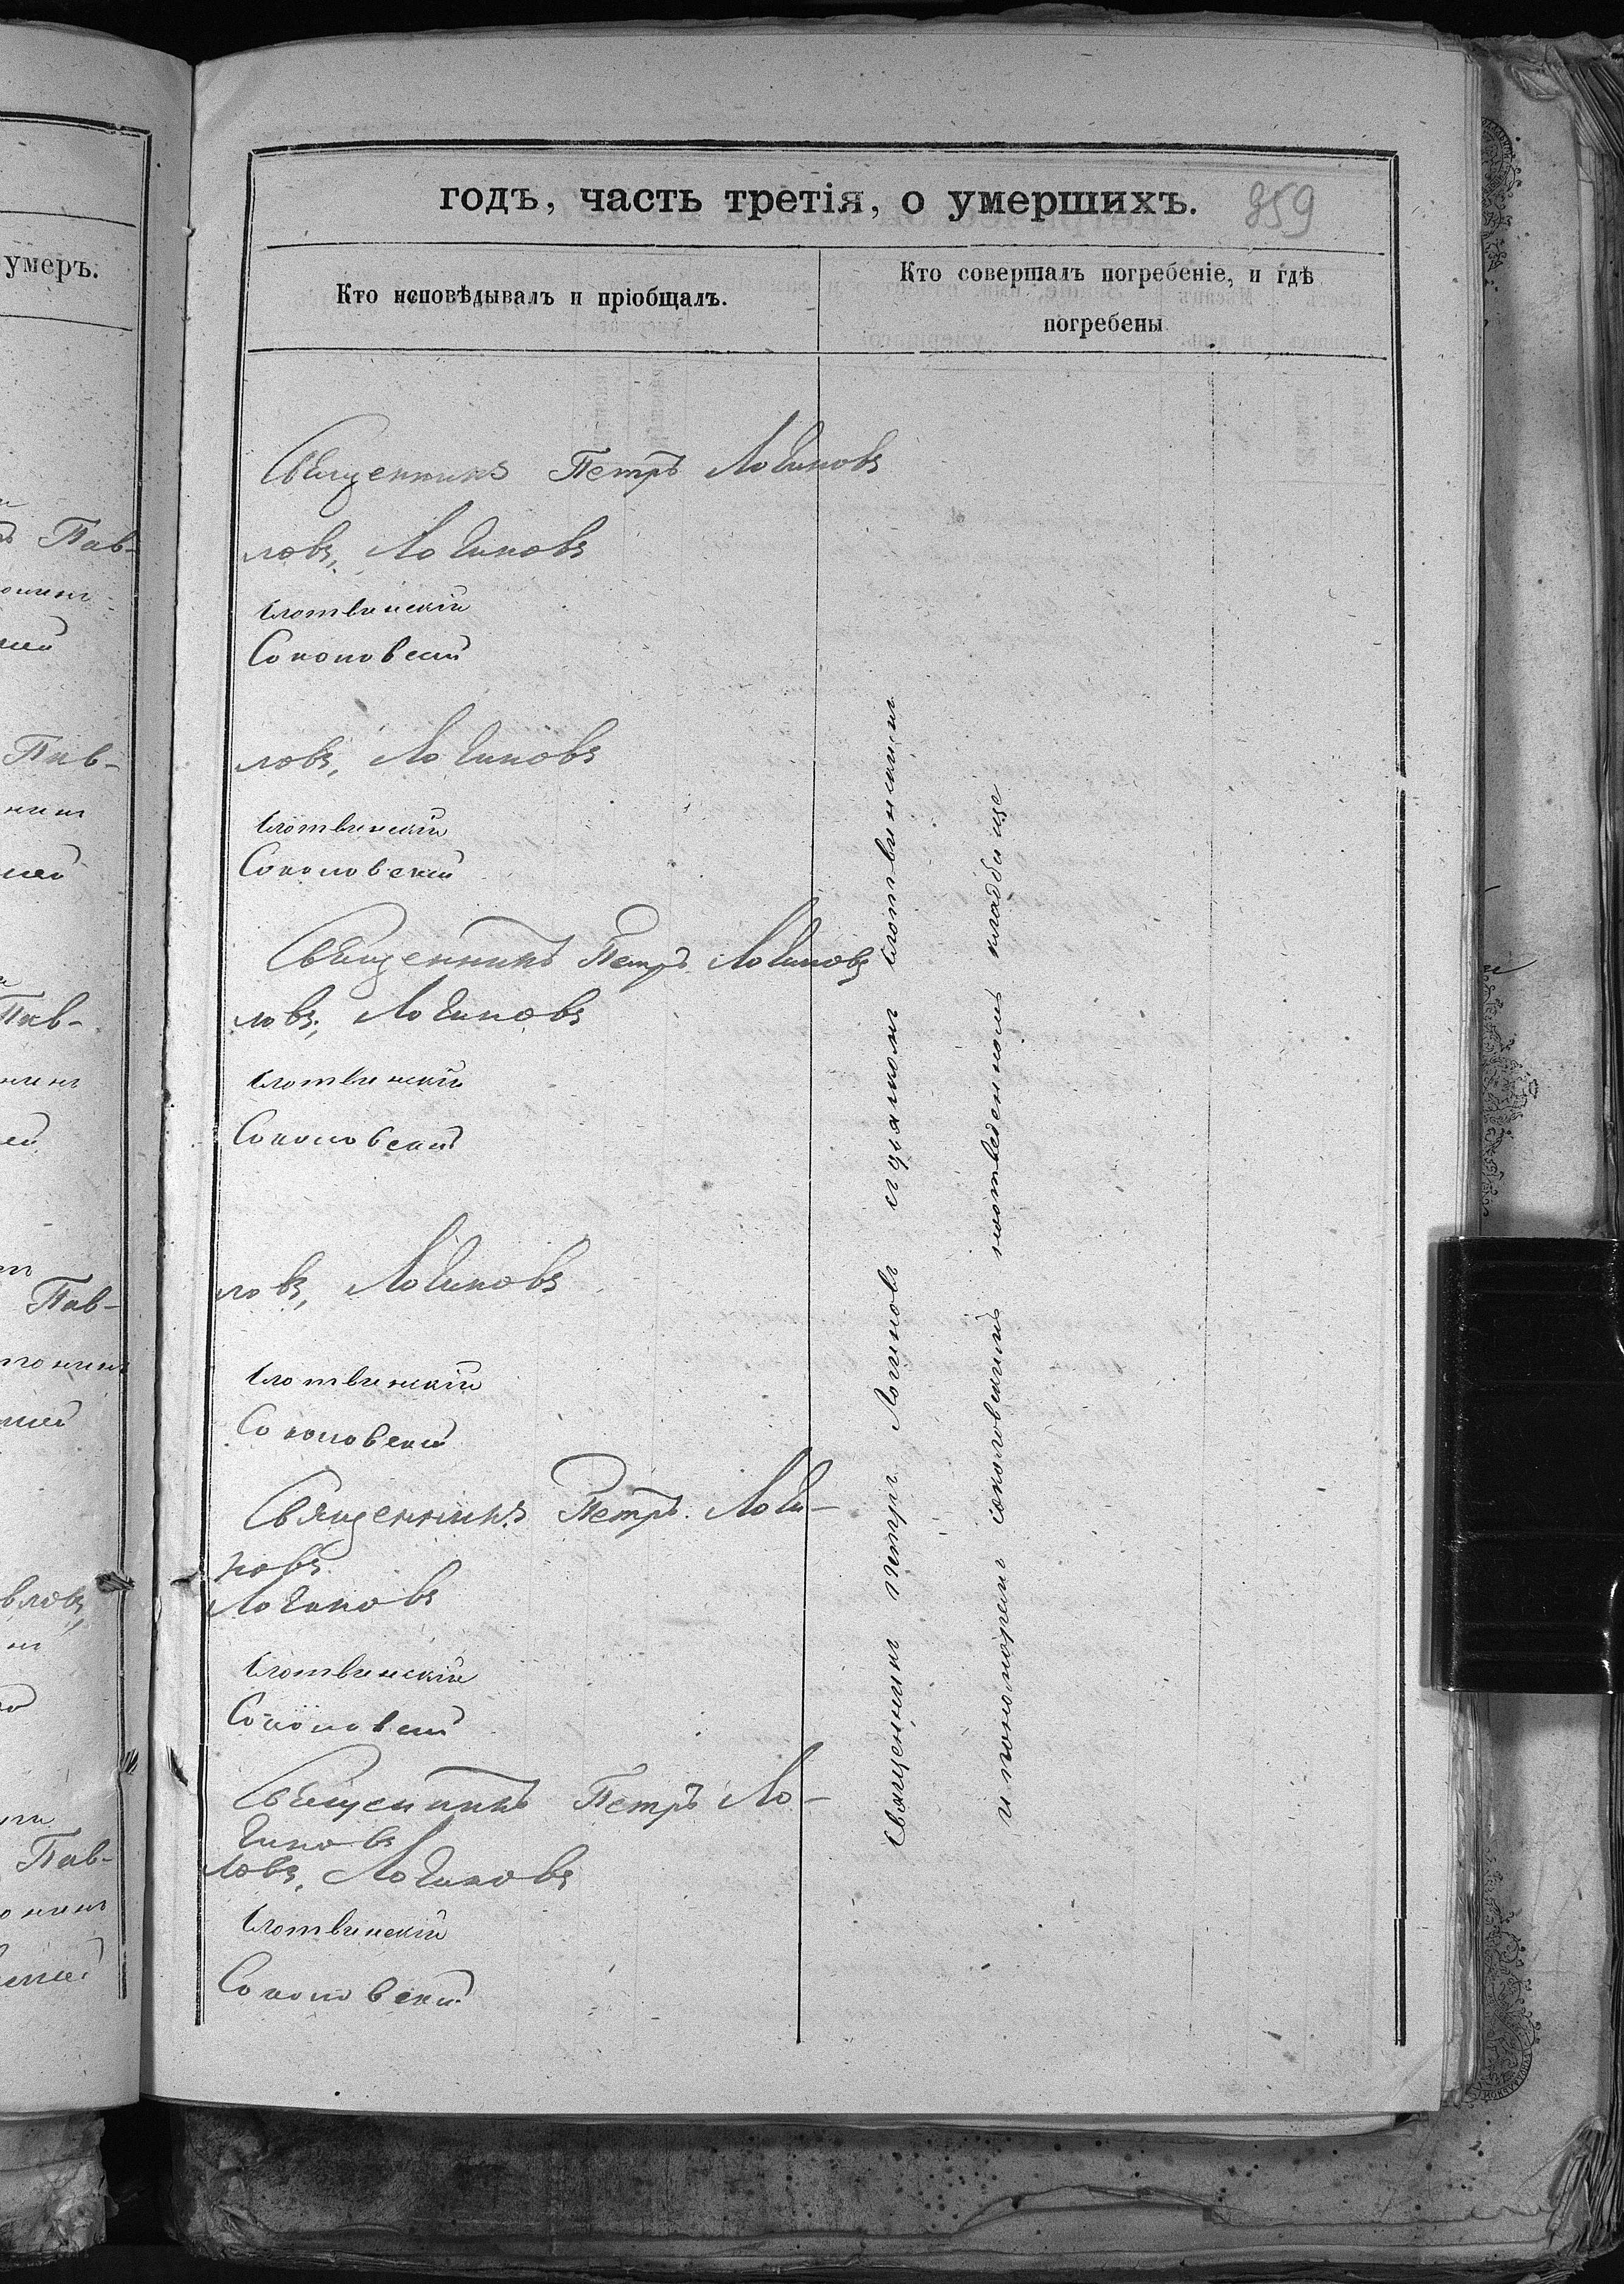 годъ, часть третія, о умершихъ.
959
умеръ.
Кто исповѣдывалъ и пріобщалъ.
Кто совершалъ погребеніе, и гдѣ
погребены
Священникъ Петръ Логиновъ
ловъ, Логиновъ
Слотвинскій
Соколовскій
ловъ, Логиновъ
Слотвинскій
Соколовскій
Священникъ Петръ Логиновъ
ловъ, Логиновъ
Слотвинскій
Соколовскій
ловъ, Логиновъ
Слотвинскій
Соколовскій
Священникъ Петръ Логи-
новъ
Логиновъ
Слотвинскій
Соколовскій
Священникъ Петръ Ло-
гиновъ
ловъ, Логиновъ
Слотвинскій
Соколовскій
Священникъ Петръ Логиновъ съ дьякомъ Слотвинскимъ
и пономаремъ Соколовскимъ на отведенномъ кладбище
Пав-
Пав-
Пав-
Пав-
вловъ,
Пав-